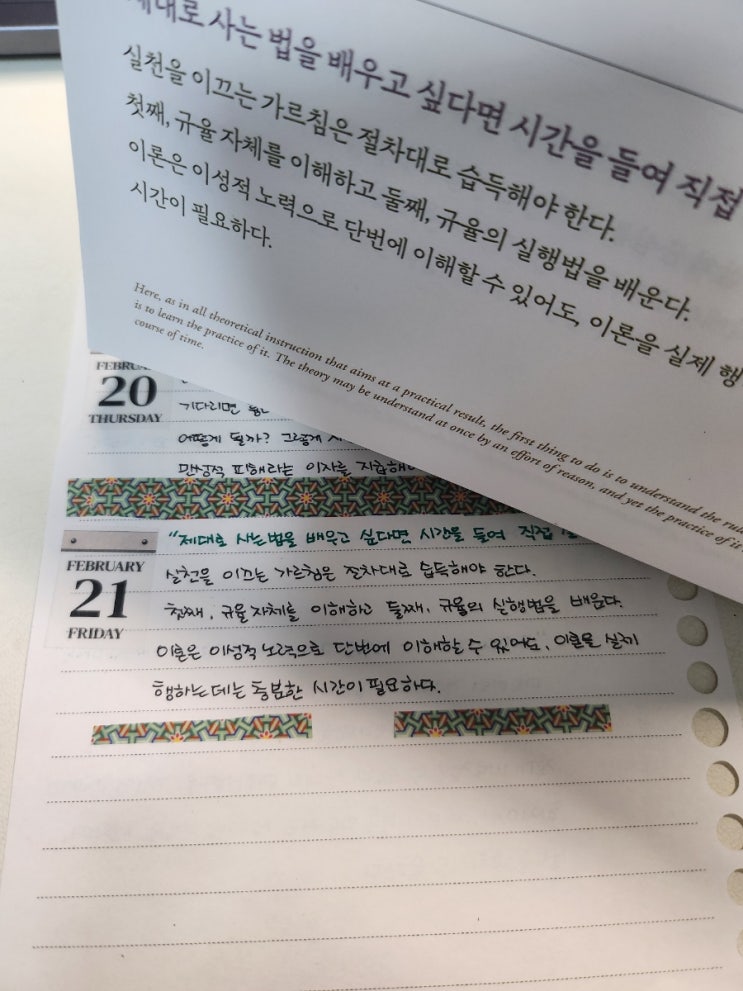 제대로 사는 법을 배우고 싶다면 시간을 들여 직접
실천을 이끄는 가르침은 절차대로 습득해야 한다.
첫째, 규율 자체를 이해하고 둘째, 규율의 실행법을 배운다.
이론은 이성적 노력으로 단번에 이해할 수 있어도, 이론을 실제 행
시간이 필요하다.
Here, as in all theoretical instruction that aims at a practical result, the first thing to do is to understand the rule
is to learn the practice of it. The theory may be understood at once by an effort of reason, and yet the practice of it
course of time.
20
THURSDAY
기다리면
어떻게 될까? 그렇게
만성적 피해라는 이자를 지급해야
FEBRUARY
21
FRIDAY
“제대로 사는 법을 배우고 싶다면 시간을 들여 직접
실천을 이끄는 가르침은 절차대로 습득해야 한다.
첫째, 규율 자체를 이해하고 둘째, 규율의 실행법을 배운다.
이론은 이성적 노력으로 단번에 이해할 수 있어도, 이론을 실제
행하는데는 충분한 시간이 필요하다.